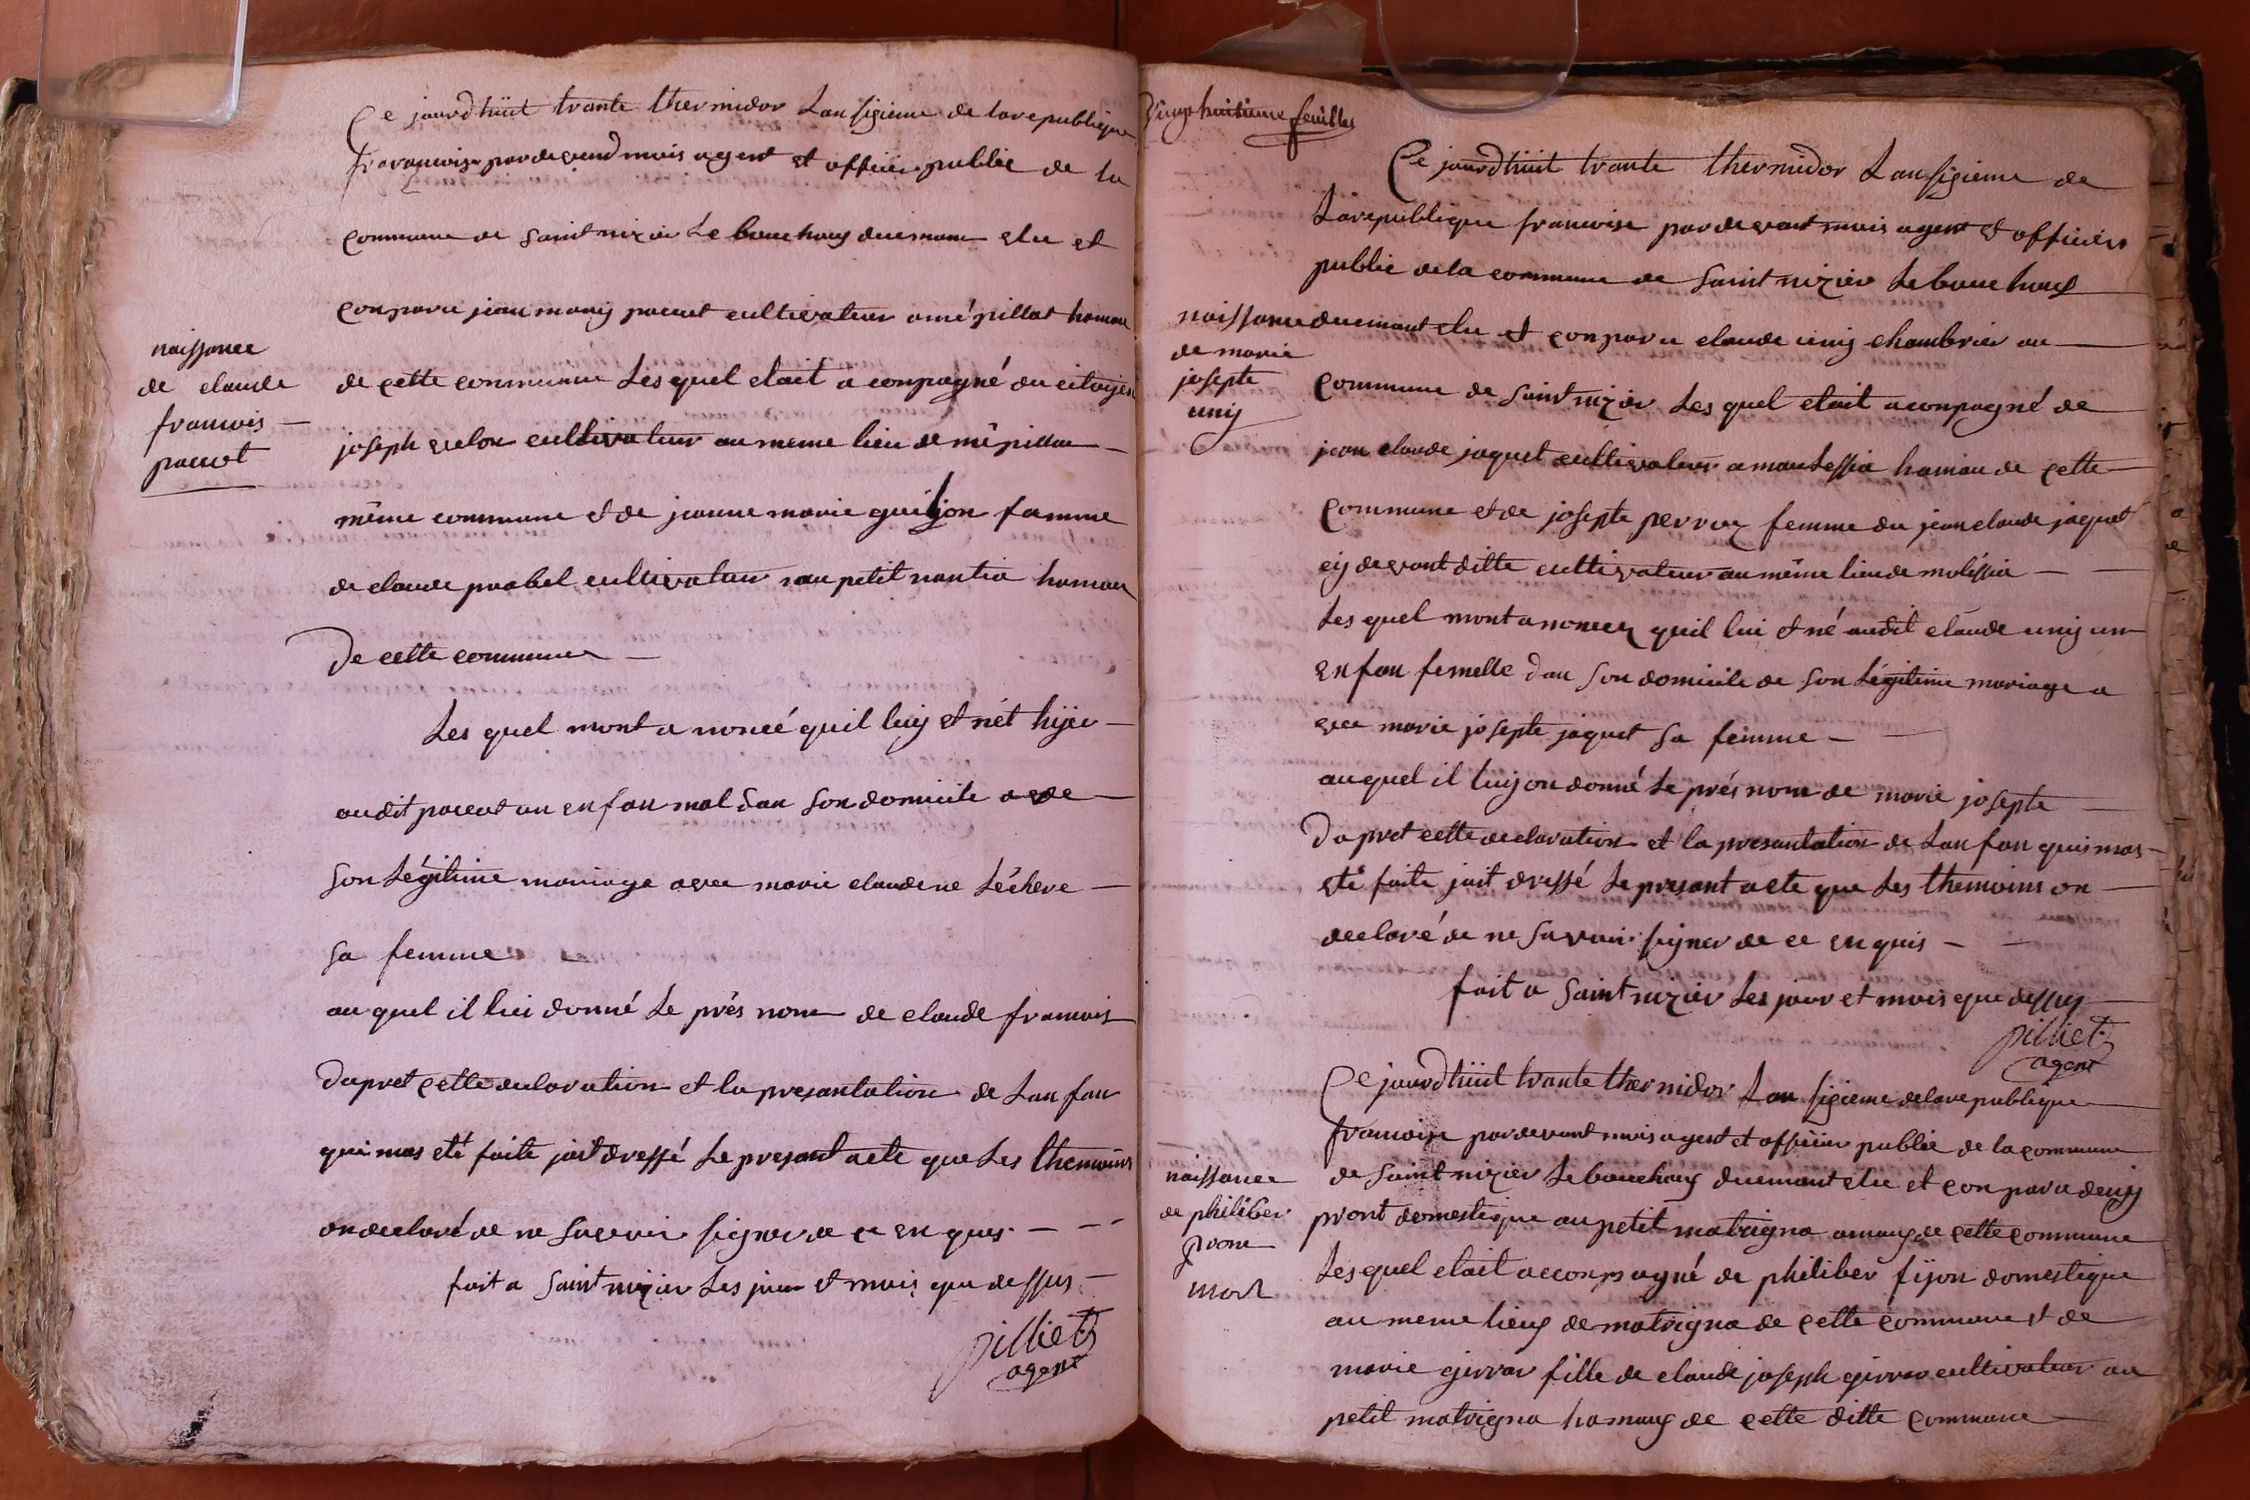 Ce jourd'huit trante thermidor Lan sigieme de la republique
francoise par devend mois agent et officier public de la
commune de saint nizier Le bouchoux duemane elu et
conparu jean mary pacut cultivateur a mépillat hamau
naissance
de claude
francois
pacut
de cette commune Les quel etait a conpagné du citoijen
joseph cultivateur au meme lieu de mépillat
même commune et de jeanne marie guijon famme
de claude poobel cultivateur au petit nantia hamau
De cette commune
Les quel mont a noncé quil luij et nét hijer
audit pacut un enfan mal dan son domicile
son Légitime mariage avec marie claudene Léchere
sa femme
au quel il lui donné Le prés nom de claude francois
Dapret cette declaration et la presantation de Lan fan
qui mas eté faite jait dressé Le presant acte que Les themoins
on declaré de ne savoir signer de ce en ques
fait a saint nizier Les jour et mois que dessus
pilliet
agent
Vingt huitieme feuilles
Ce jourd'huit trante thermidor Lan sigieme de
La republique francoise par devant mois agent et officiers
public de la commune de saint nizier Le bouchoux
naissance
de marie
josepte
unij
duemant elu et conparu claude unij chambrier au
commune de saint nizier Les quel etait a conpagné de
jean claude jaquet cultivateur a maulessia hamau de cette
commune et de josepte perruz femme du jean claude jaquet
cij devant ditte cultivateur au même lieu de molissia
Les quel mont anoncez quil lui et né audit claude unij un
enfan femelle dan son domicile de son Légitime mariage a
vec marie josepte jaquet sa femme
au quel il luij on donné Le prés nom de marie josepte
Dapret cette declaration et la presantation de Lan fan quis mas
eté faite jait dressé Le presant acte que Les themoins on
declaré de ne savoir signer de ce en quis
fait a saint nizier Les jour et mois que dessus
pilliet
agent
Ce jourd'huit trante thermidor Lan sigieme de la republique
francoise par devant mois agent et officier public de la commune
naissance
de philiber
prone
mort
de saint nizier Le bouchoux duemant elu et conparu denij
pront domestique au petit matrigna amaux de cette commune
Les quel etait acconpagné de philiber fijon domestique
au meme lieux de matrigna de cette commune et de
marie girrar fille de claude joseph girrar cultivateur au
petit matrigna hamaux de cette ditte commune